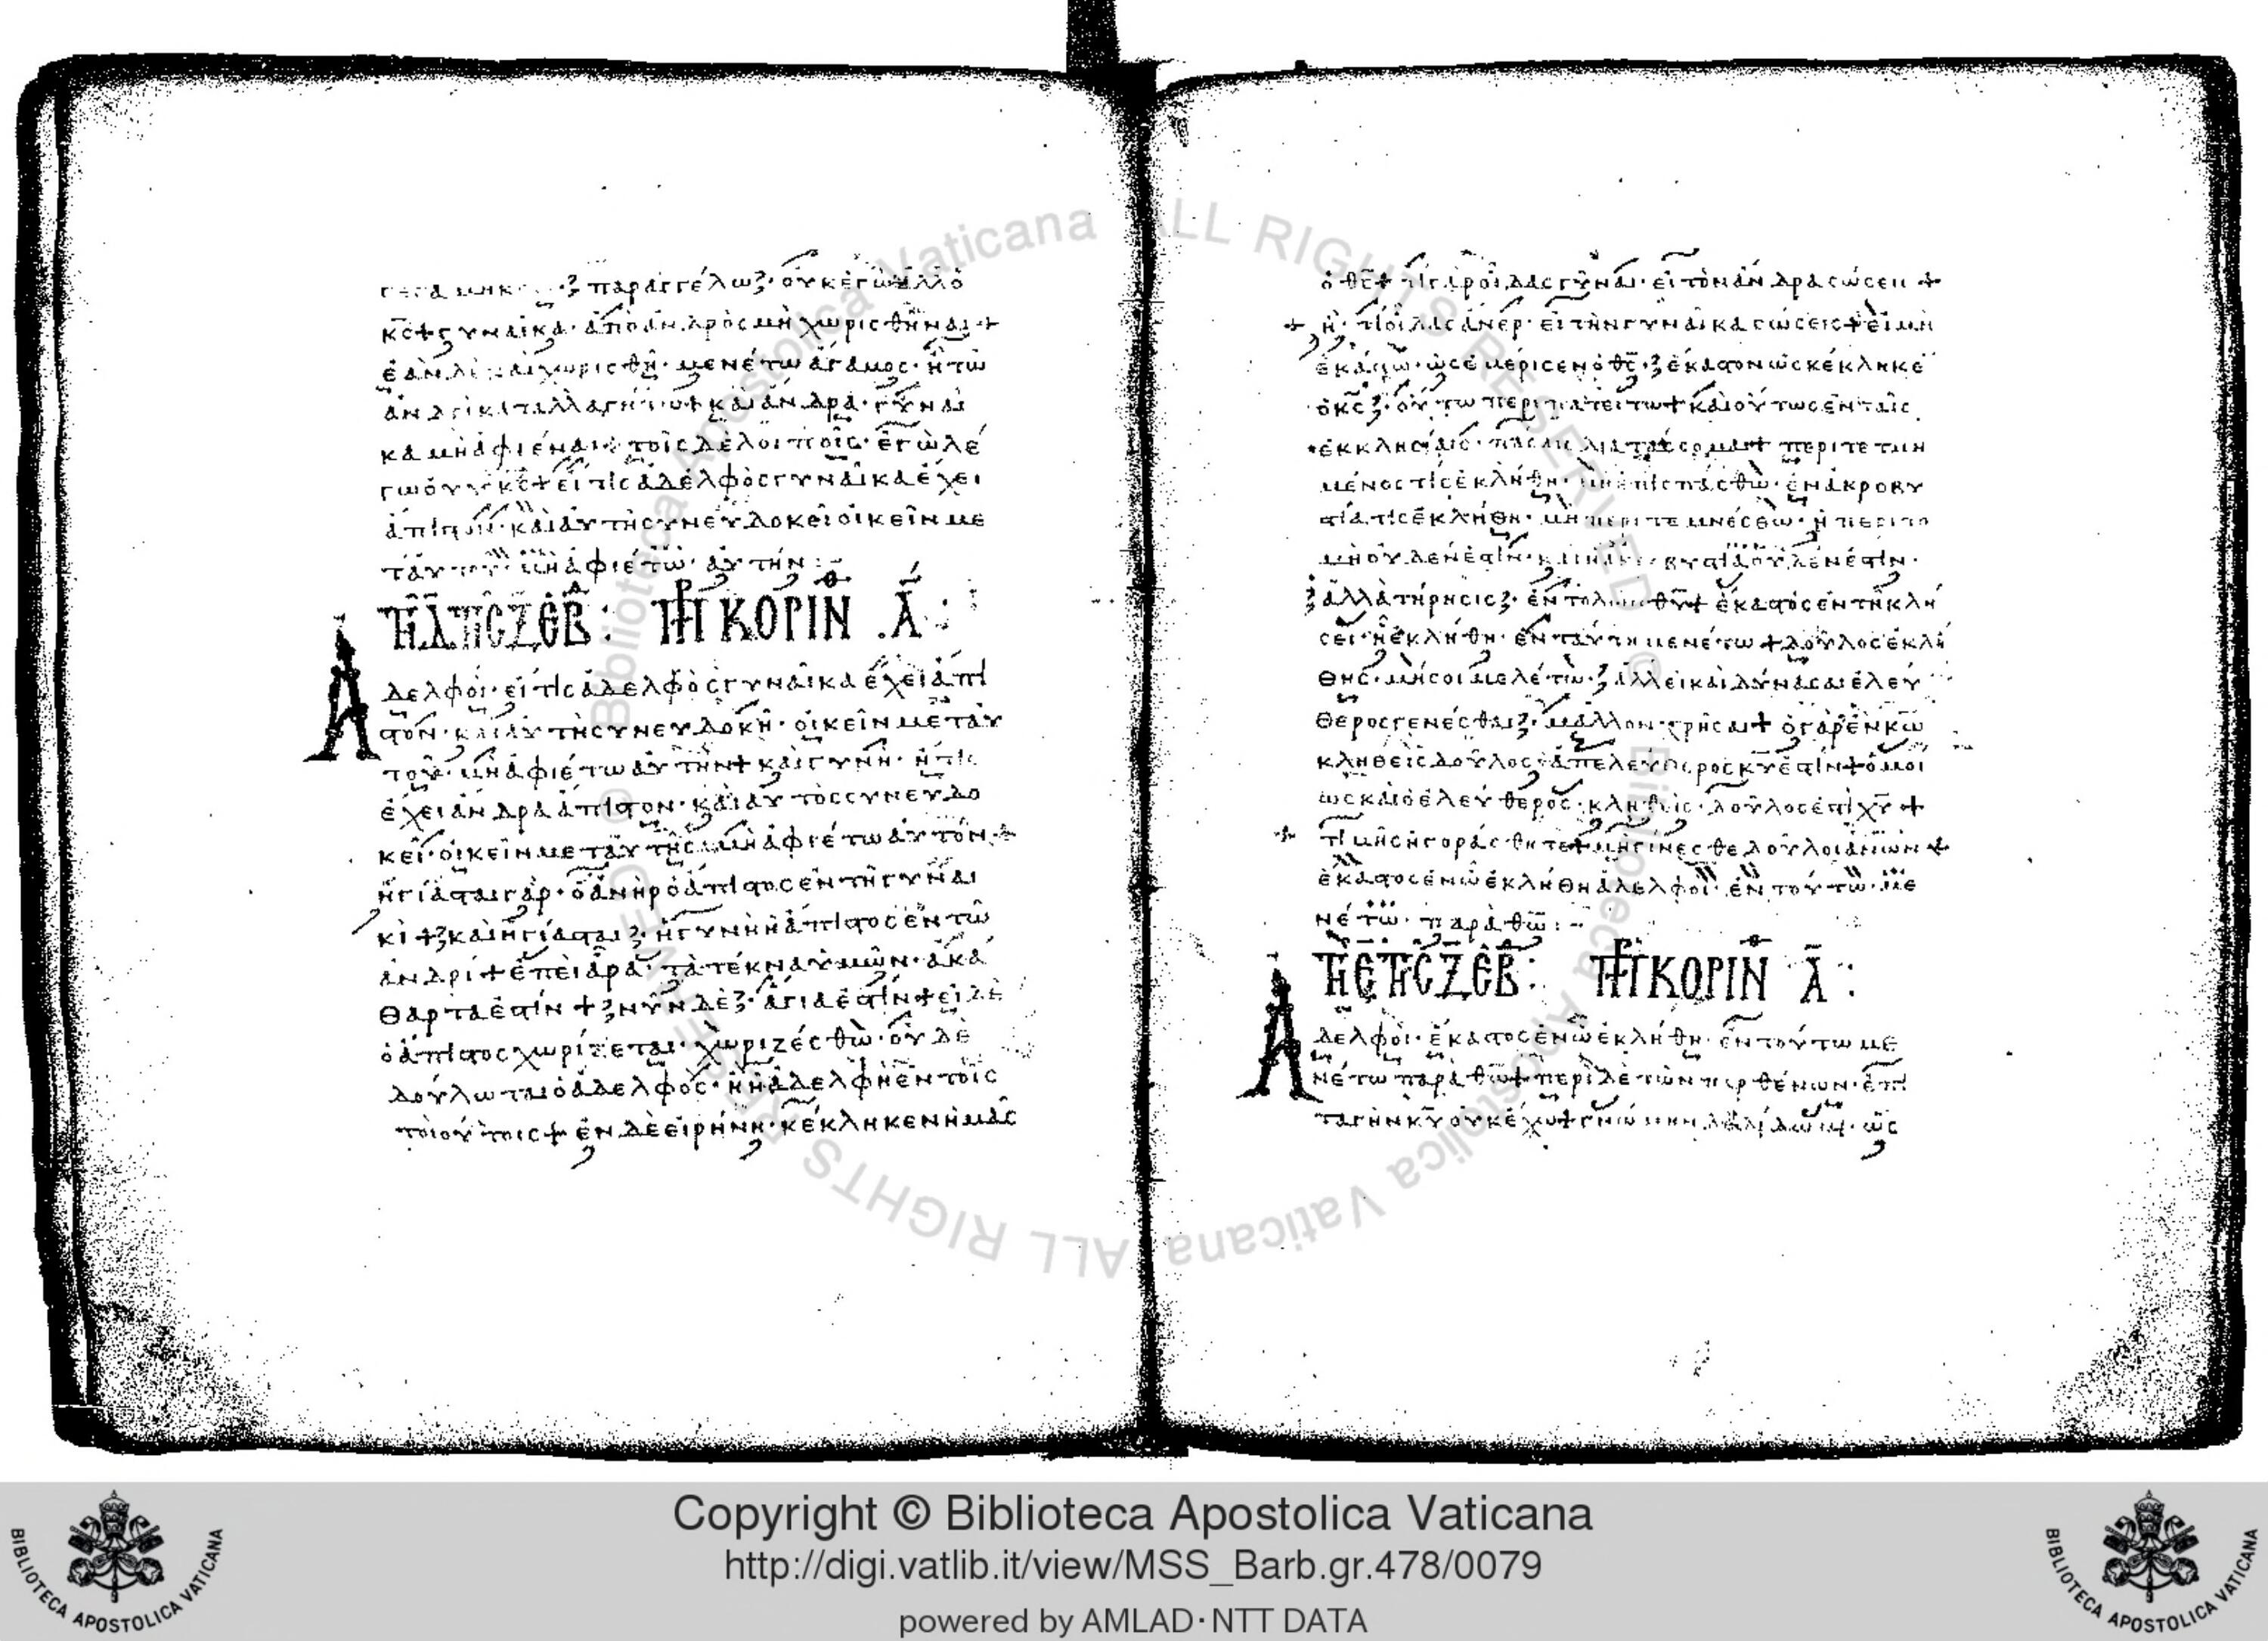 παραγγέλω· οὐκ ἐγὼ ἀλλ ὁ
κ̅ς̅ + γυναῖκα· ἀπὸ ἀνδρὸς μὴ χωρισθῆναι +
ἐὰν δὲ καὶ χωρισθῆ· μενέτω ἄγαμος· ἢ τῶ
ἀνδρὶ καταλλαγήτω + καὶ ἄνδρα· γυναῖ
κα μὴ ἀφιέναι· τοῖς δὲ λοιποῖς· ἐγὼ λέ
γω οὐχ ὁ κ̅ς̅ + εἴ τις ἀδελφὸς γυναῖκα ἔχει
ἄπιστον· καὶ αὐτὴ συνευδοκεῖ οἰκεῖν με
τ αὐτοῦ· μὴ ἀφιέτω· αὐτήν :
ΚΟΡΙΝ Α̅ :
Αδελφοί· εἴ τις ἀδελφὸς γυναῖκα ἔχει ἄπι
στον· καὶ αὐτὴ συνευδοκῆ· οἰκεῖν μετ αὐ
τοῦ· μὴ ἀφιέτω αὐτήν + καὶ γυνὴ· ἥτις
ἔχει ἄνδρα ἄπιστον· καὶ αὐτὸς συνευδο
κεῖ· οἰκεῖν μετ αὐτῆς· μὴ ἀφιέτω αὐτόν +
ἡγίασται γὰρ· ὁ ἀνὴρ ὁ ἄπιστος ἐν τῆ γυναι
κὶ + καὶ ἡγίασται· ἡ γυνὴ ἡ ἄπιστος ἐν τῶ
ἀνδρί + ἐπεὶ ἄρα· τὰ τέκνα ὑμῶν· ἀκά
θαρτα ἐστίν + νῦν δὲ· ἅγια ἐστίν + εἰ δὲ
ὁ ἄπιστος χωρίζεται· χωριζέσθω· οὐ δε
δούλωται ὁ ἀδελφὸς· ἢ ἡ ἀδελφὴ ἐν τοῖς
τοιούτοις + ἐν δὲ εἰρήνη· κέκληκεν ἡμᾶς
ὁ θ̅ς̅ + τί γὰρ οἶδας γύναι· εἰ τὸν ἄνδρα σώσεις +
+ ἢ· τί οἶδας ἄνερ· εἰ τὴν γυναῖκα σώσεις + εἰ μὴ
ἑκάστω· ὡς ἐμέρισεν ὁ θ̅ς̅· ἕκαστον ὡς κέκληκε
ὁ κ̅ς̅· οὕτω περιπατείτω + καὶ οὕτως ἐν ταῖς
ἐκκλησίαις· πάσαις διατάσσομαι + περιτετμη
μένος τίς ἐκλήθη· μὴ ἐπισπάσθω· ἐν ἀκροβυ
στία τίς ἐκλήθη· μὴ περιτεμνέσθω· ἡ περιτο
μὴ οὐδέν ἐστίν· καὶ ἡ ἀκροβυστία οὐδέν ἐστίν·
ἀλλὰ τήρησις· ἐντολῶν θ̅υ̅ + ἕκαστος ἐν τῆ κλή
σει· ἧ ἐκλήθη· ἐν ταύτη μενέτω + δοῦλος ἐκλή
θης· μή σοι μελέτω· ἀλλ εἰ καὶ δύνασαι ἐλεύ
θερος γενέσθαι· μᾶλλον χρῆσαι + ὁ γὰρ ἐν κ̅ω̅
κληθεὶς δοῦλος· ἀπελεύθερος κ̅υ̅ ἐστίν + ὁμοί
ως καὶ ὁ ἐλεύθερος· κληθεὶς· δοῦλος ἐστὶ χ̅υ̅ +
+ τιμῆς ἠγοράσθητε + μὴ γίνεσθε δοῦλοι ἀν̅ω̅ν̅ +
ἕκαστος ἐν ὧ ἐκλήθη ἀδελφοί· ἐν τούτω· με
νέτω· παρὰ θ̅ω̅ :
ΚΟΡΙΝ Α̅ :
Αδελφοὶ· ἕκαστος ἐν ὧ ἐκλήθη· ἐν τούτω με
νέτω παρὰ θ̅ω̅ + περὶ δὲ τῶν παρθένων· ἐπι
ταγὴν κ̅υ̅ οὐκ ἔχω + γνώμην δὲ δίδωμι· ὡς
Copyright © Biblioteca Apostolica Vaticana
http://digi.vatlib.it/view/MSS_Barb.gr.478/0079
powered by AMLAD·NTT DATA
BIBLIOTECA APOSTOLICA VATICANA
BIBLIOTECA APOSTOLICA VATICANA